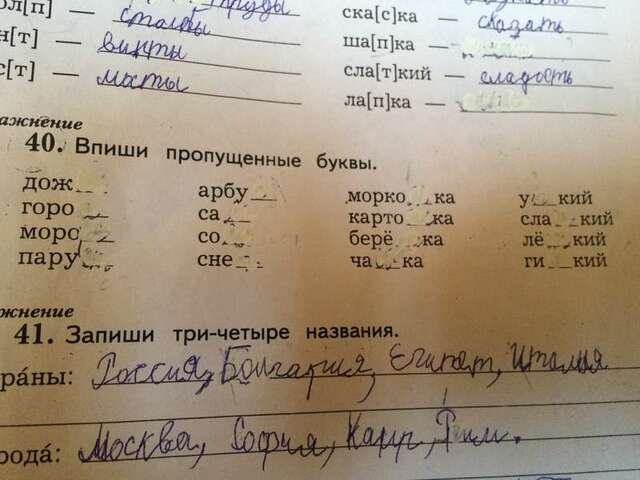 ол[п] — столбы труды
н[т] — винты
с[т] — мосты
ска[с]ка — сказать
ша[п]ка —
сла[т]кий — сладость
ла[п]ка —
ажнение
40. Впиши пропущенные буквы.
дож__ арбу__ морко__ка у__кий
горо__ са__ карто__ка сла__кий
моро__ со__ берё__ка лё__кий
пару__ сне__ ча__ка ги__кий
жнение
41. Запиши три-четыре названия.
ра́ны: Россия, Болгария, Египет, Италия
рода́: Москва, София, Каир, Рим.